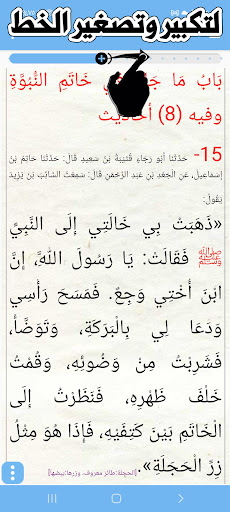 لتكبير وتصغير الخط
بَابُ مَا خَاتَمِ النُّبُوَّةِ
وفيه (8) أحاديث
15- حَدَّثَنَا أَبُو رَجَاءٍ قُتَيْبَةُ بْنُ سَعِيدٍ قَالَ: حَدَّثَنَا حَاتِمُ بْنُ
إِسْمَاعِيلَ، عَنِ الْجَعْدِ بْنِ عَبْدِ الرَّحْمَنِ قَالَ: سَمِعْتُ السَّائِبَ بْنَ يَزِيدَ
يَقُولُ:
«ذَهَبَتْ بِي خَالَتِي إِلَى النَّبِيِّ
ﷺ فَقَالَتْ: يَا رَسُولَ اللَّهِ، إِنَّ
ابْنَ أُخْتِي وَجِعٌ. فَمَسَحَ رَأْسِي
وَدَعَا لِي بِالْبَرَكَةِ، وَتَوَضَّأَ،
فَشَرِبْتُ مِنْ وَضُوئِهِ، وَقُمْتُ
خَلْفَ ظَهْرِهِ، فَنَظَرْتُ إِلَى
الْخَاتَمِ بَيْنَ كَتِفَيْهِ، فَإِذَا هُوَ مِثْلُ
زِرِّ الْحَجَلَةِ».
[الحجلة:طائر معروف، وزرها:بيضها]